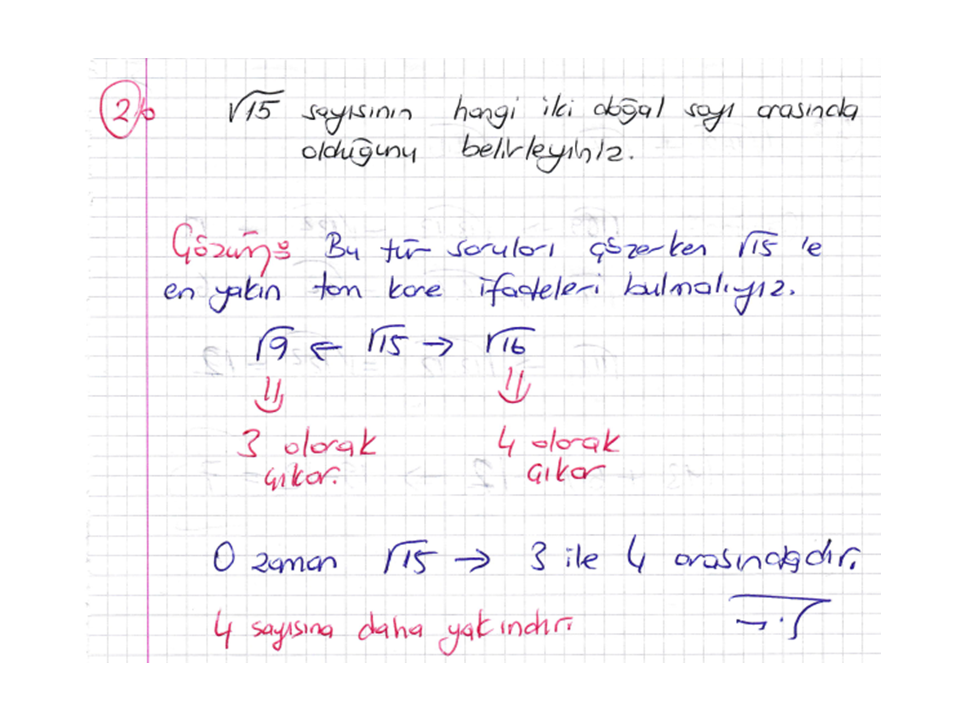 2) √15 sayısının hangi iki doğal sayı arasında
olduğunu belirleyiniz.
Çözüm: Bu tür soruları çözerken √15 'e
en yakın tam kare ifadeleri bulmalıyız.
√9 ← √15 → √16
⇓ ⇓
3 olarak 4 olarak
çıkar. çıkar
O zaman √15 → 3 ile 4 arasındadır.
4 sayısına daha yakındır.